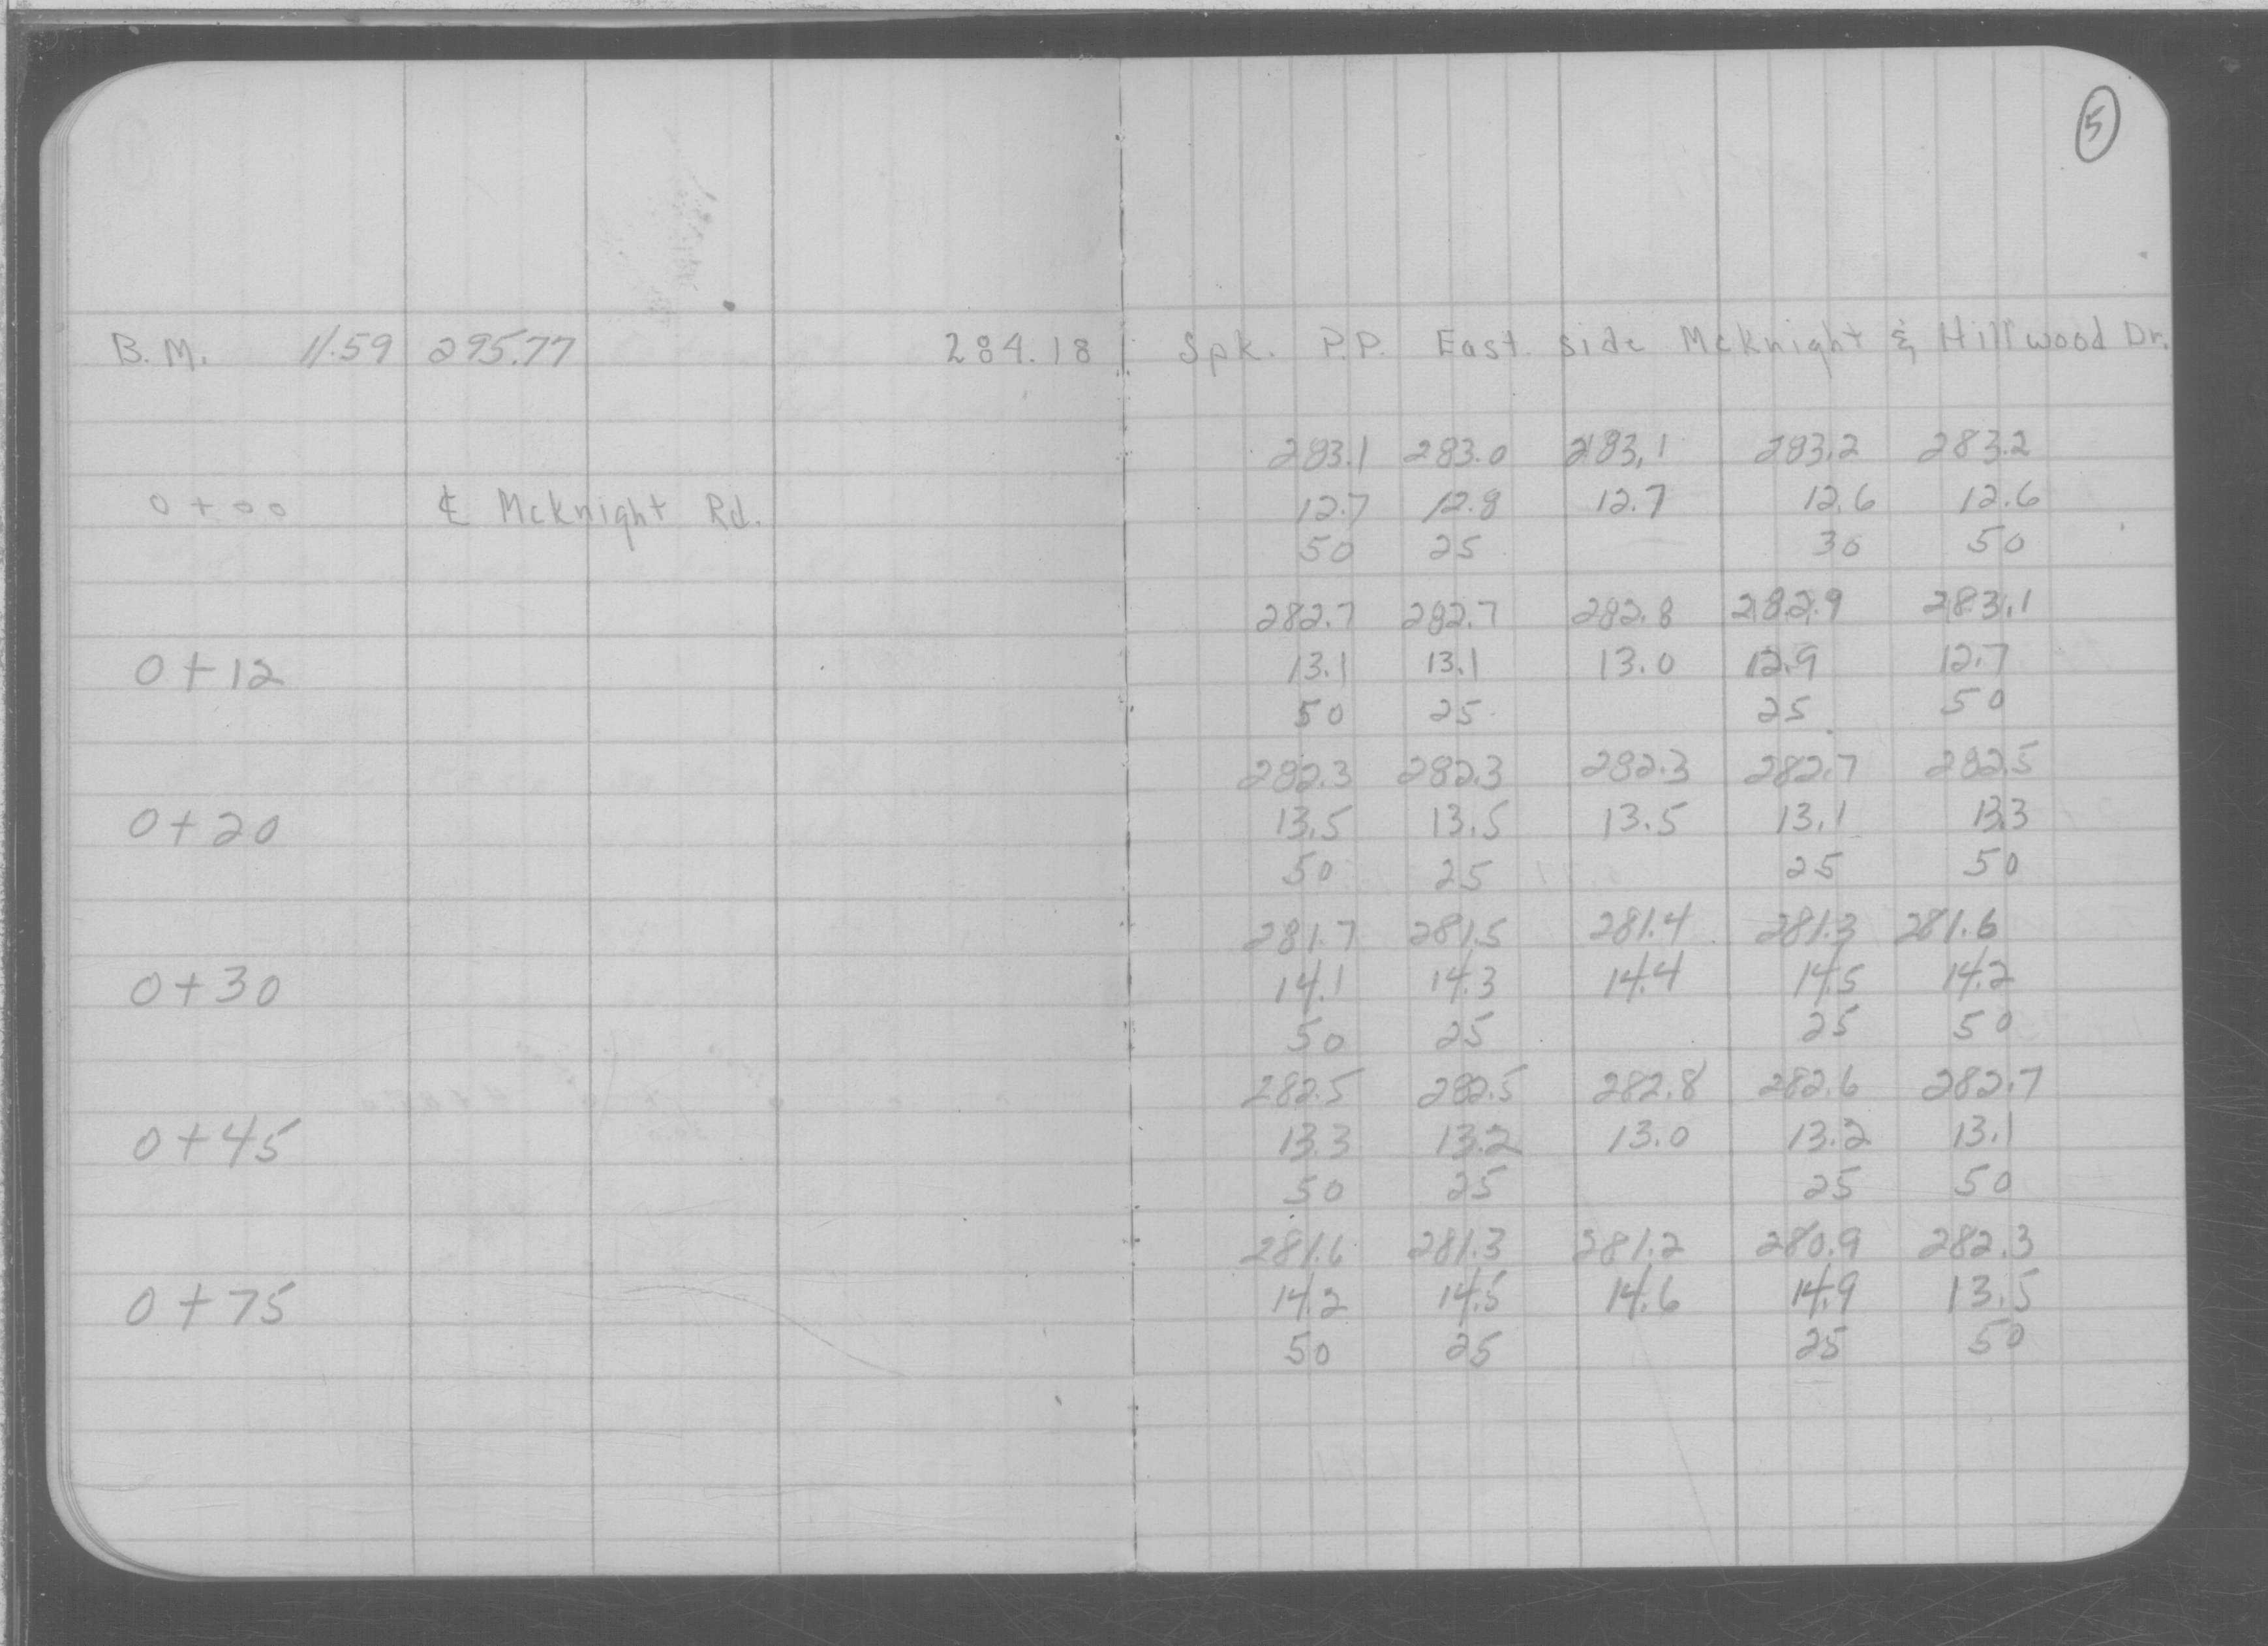 5
B.M. 11.59 295.77 284.18 Spk. P.P. East side McKnight & Hillwood Dr.
283.1 283.0 283.1 283.2 283.2
0+00 ℄ McKnight Rd. 12.7 12.8 12.7 12.6 12.6
50 25 30 50
282.7 282.7 282.8 282.9 283.1
0+12 13.1 13.1 13.0 12.9 12.7
50 25 25 50
282.3 282.3 282.3 282.7 282.5
0+20 13.5 13.5 13.5 13.1 13.3
50 25 25 50
281.7 281.5 281.4 281.3 281.6
0+30 14.1 14.3 14.4 14.5 14.2
50 25 25 50
282.5 282.5 282.8 282.6 282.7
0+45 13.3 13.2 13.0 13.2 13.1
50 25 25 50
281.6 281.3 281.2 280.9 282.3
0+75 14.2 14.5 14.6 14.9 13.5
50 25 25 50